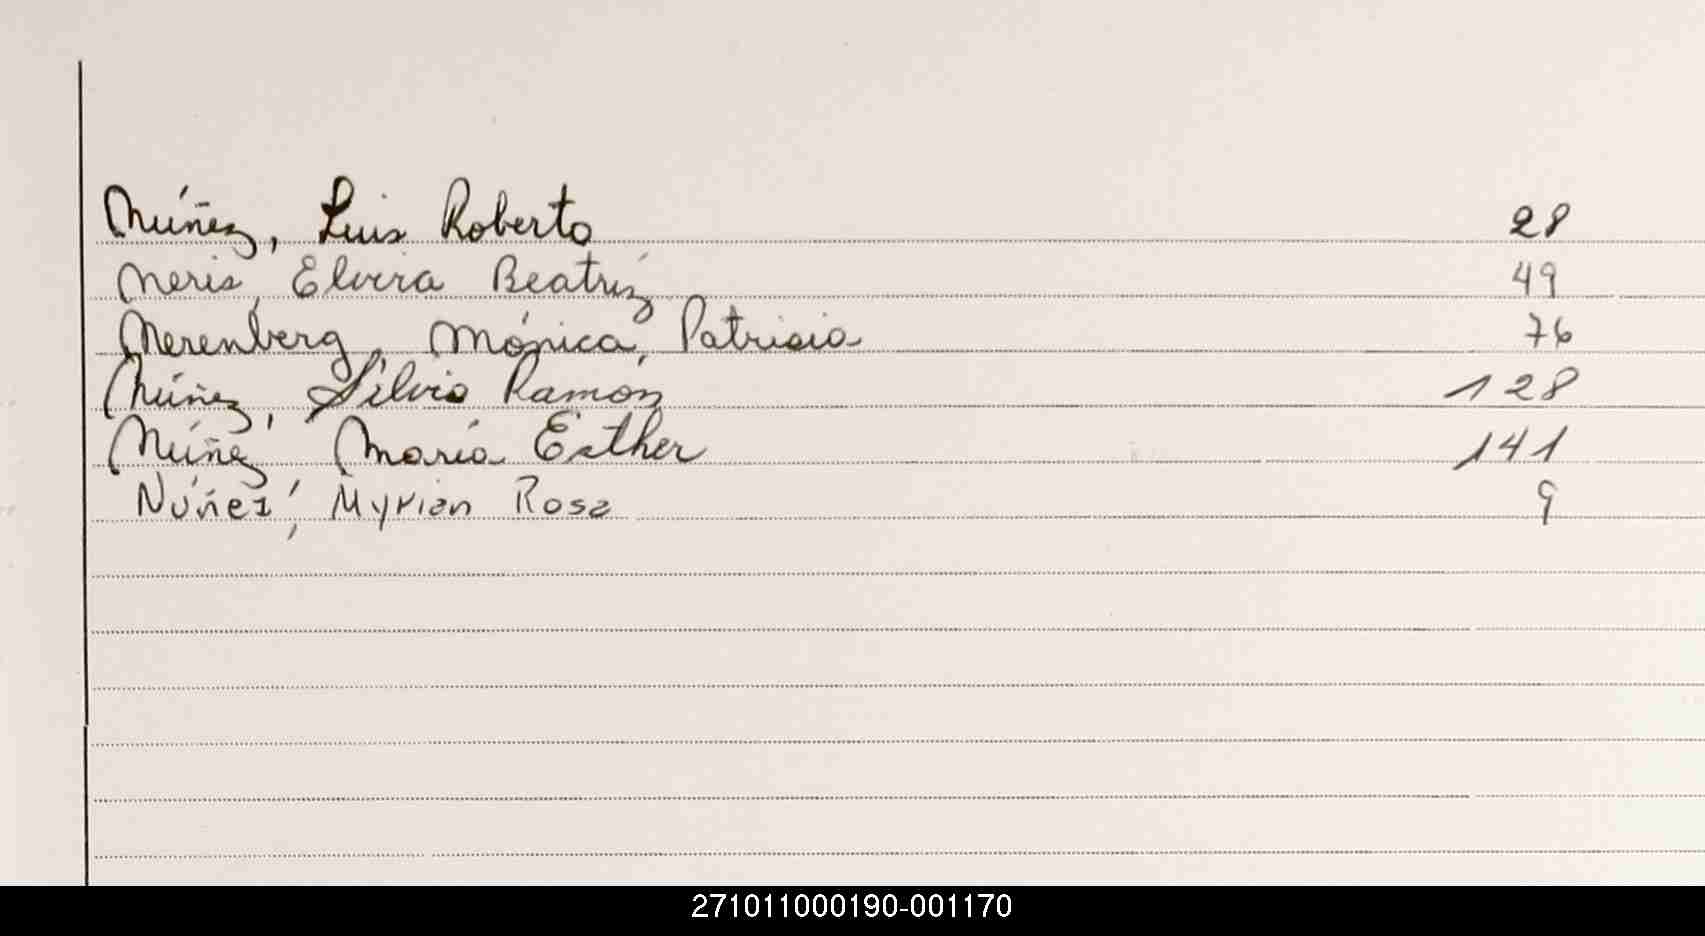 Núñez, Luis Roberto 28
Neris, Elvira Beatríz 49
Nerenberg, Mónica, Patricia 76
Núñez, Silvio Ramón 128
Núñez María Esther 141
Núñez, Myrian Rosa 9
271011000190-001170